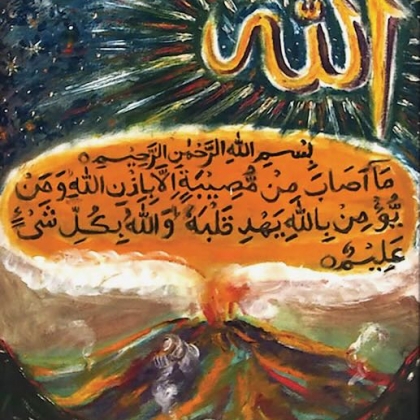 الله
بِسْمِ اللهِ الرَّحْمٰنِ الرَّحِيْمِ
مَا اَصَابَ مِنْ مُّصِيْبَةٍ اِلَّا بِاِذْنِ اللهِ وَمَنْ
يُّؤْمِنْ بِاللهِ يَهْدِ قَلْبَهٗ وَاللهُ بِكُلِّ شَىْءٍ
عَلِيْمٌ